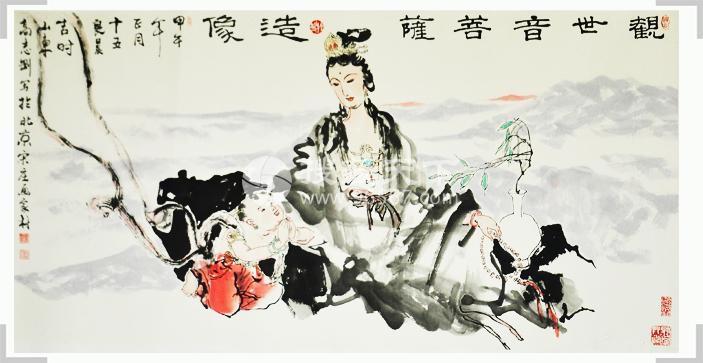 觀世音菩薩造像
甲午
年
正月
十五
良晨
吉时
山東
高志刚写於北京宋庄画家村